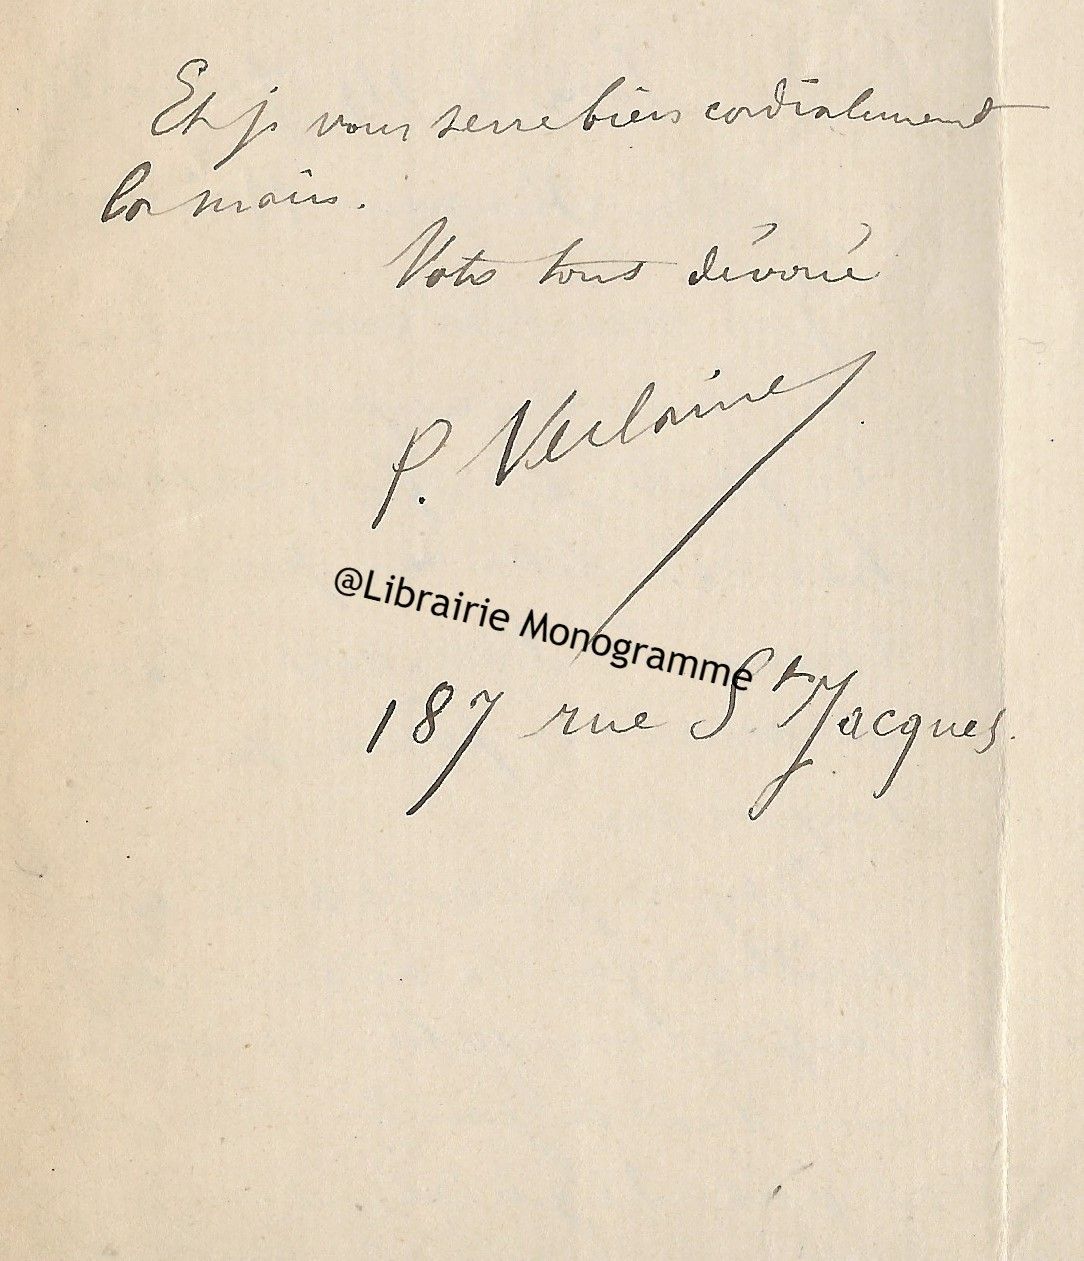 Et je vous serre bien cordialement
la main.
Votre tout dévoué
P. Verlaine
@Librairie Monogramme
187 rue St Jacques.